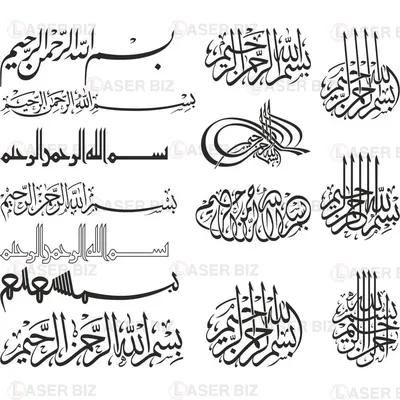 بسم الله الرحمن الرحيم
بسم الله الرحمن الرحيم
بسم الله الرحمن الرحيم
بسم الله الرحمن الرحيم
بسم الله الرحمن الرحيم
بسم الله الرحمن الرحيم
بسم الله الرحمن الرحيم
بسم الله الرحمن الرحيم
بسم الله الرحمن الرحيم
بسم الله الرحمن الرحيم
بسم الله الرحمن الرحيم
بسم الله الرحمن الرحيم
بسم الله الرحمن الرحيم
LASER BIZ